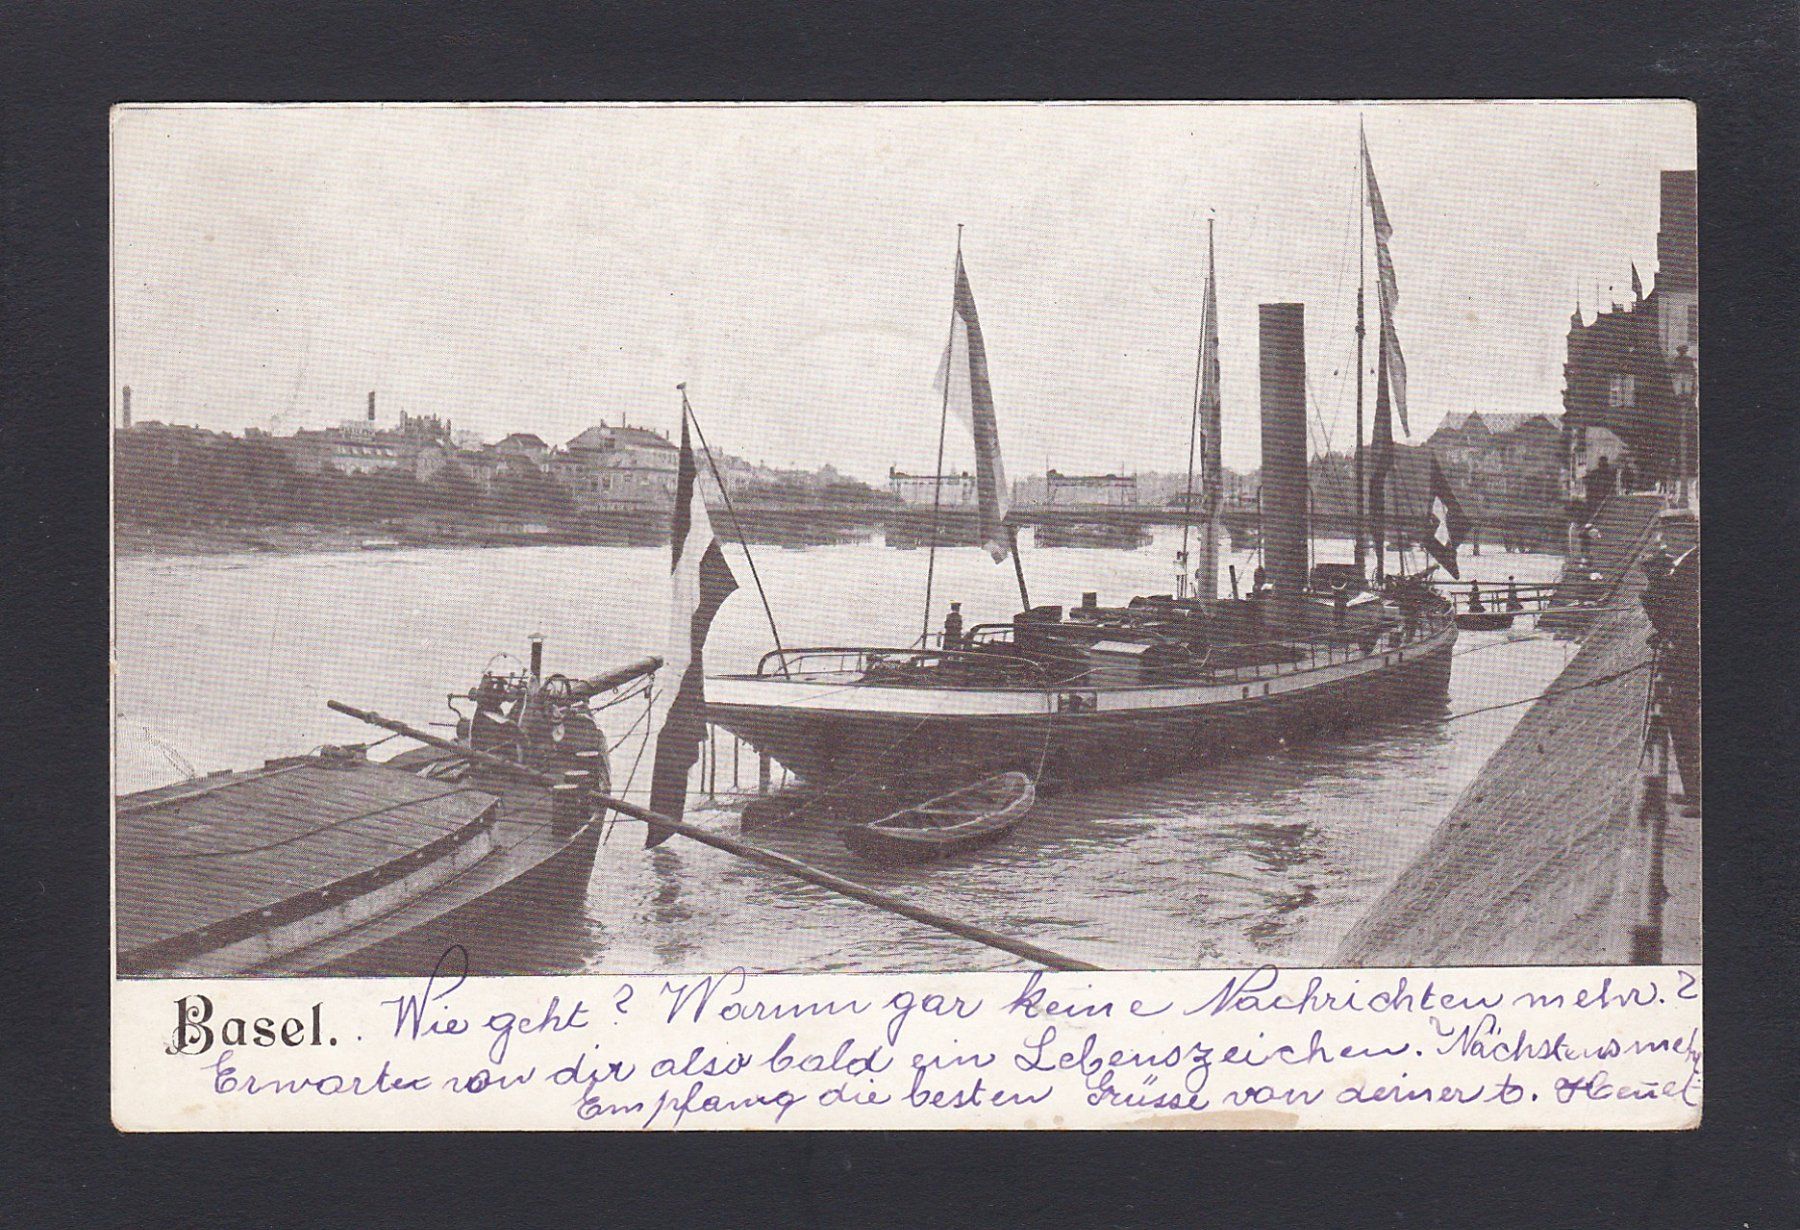 Basel. Wie geht? Warum gar keine Nachrichten mehr.?
Erwarte von dir also bald ein Lebenszeichen. Nächstens mehr
Empfang die besten Grüsse von deiner b.